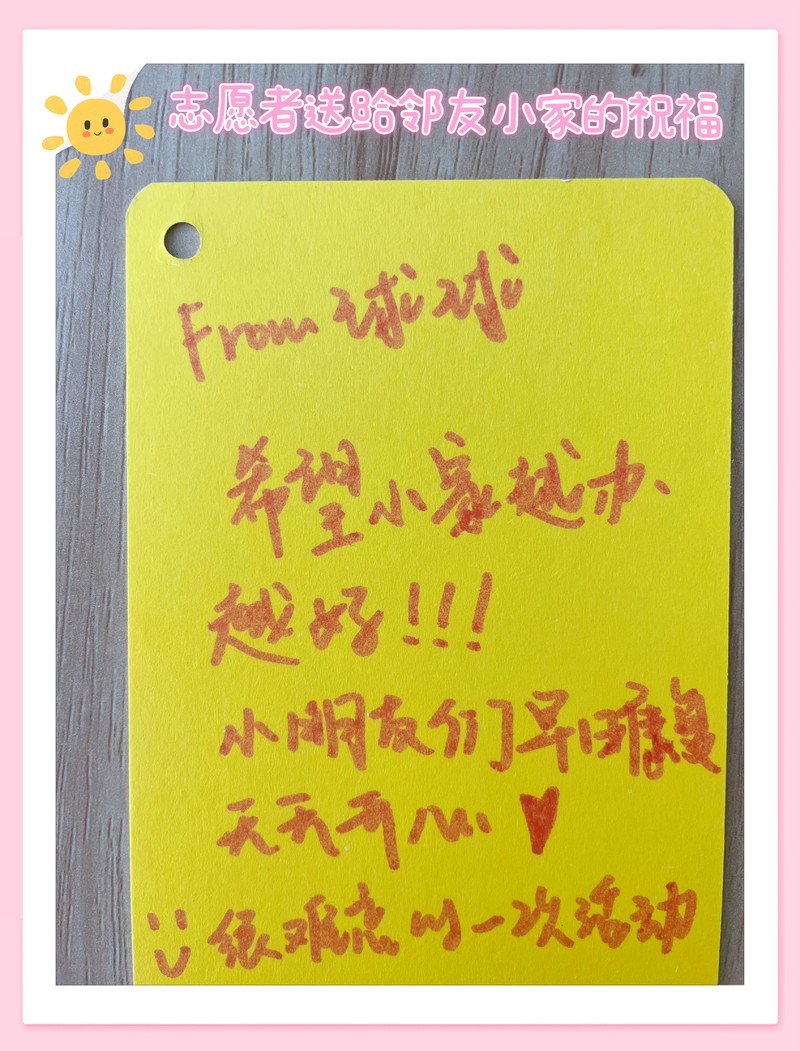 志愿者送给邻友小家的祝福
From 球球
希望小家越办
越好!!!
小朋友们早日康复
天天开心
很难忘的一次活动